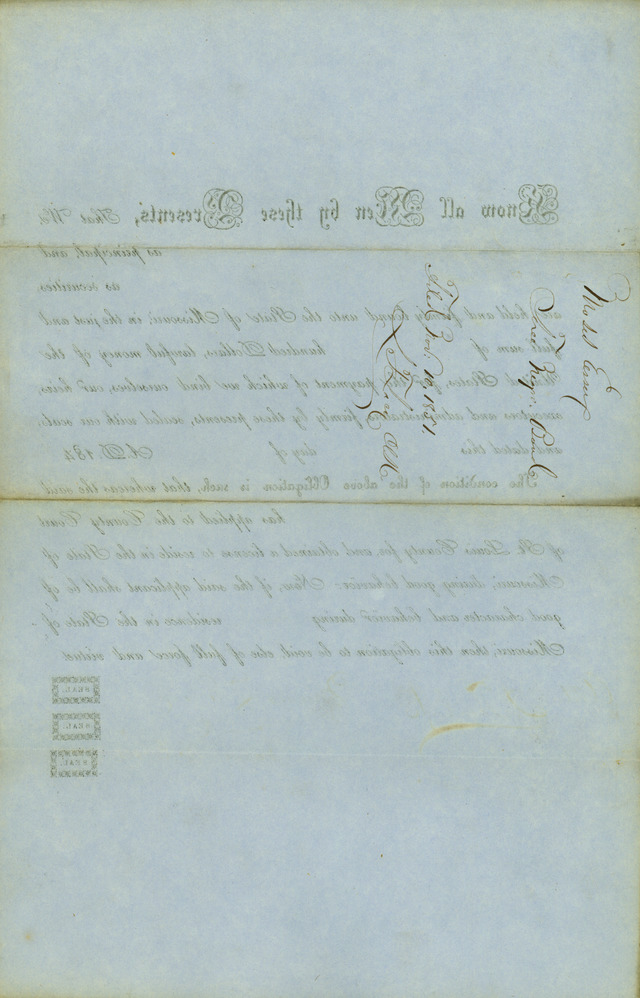 Know all Men by these Presents, That We
as principal, and
as securities,
are held and firmly bound unto the State of Missouri, in the just and
full sum of hundred Dollars, lawful money of the
United States, for the payment of which we bind ourselves, our heirs,
executors and administrators, firmly by these presents, sealed with our seals,
and dated this day of A. D. 184
The condition of the above Obligation is such, that whereas the said
has applied to the County Court
of St. Louis County for and obtained a license to reside in the State of
Missouri, during good behavior: Now, if the said applicant shall be of
good character and behavior during residence in the State of
Missouri, then this obligation to be void, else of full force and virtue.
SEAL.
SEAL.
SEAL.
Free Negro Bond
Filed Nov. 10, 1851
Clk